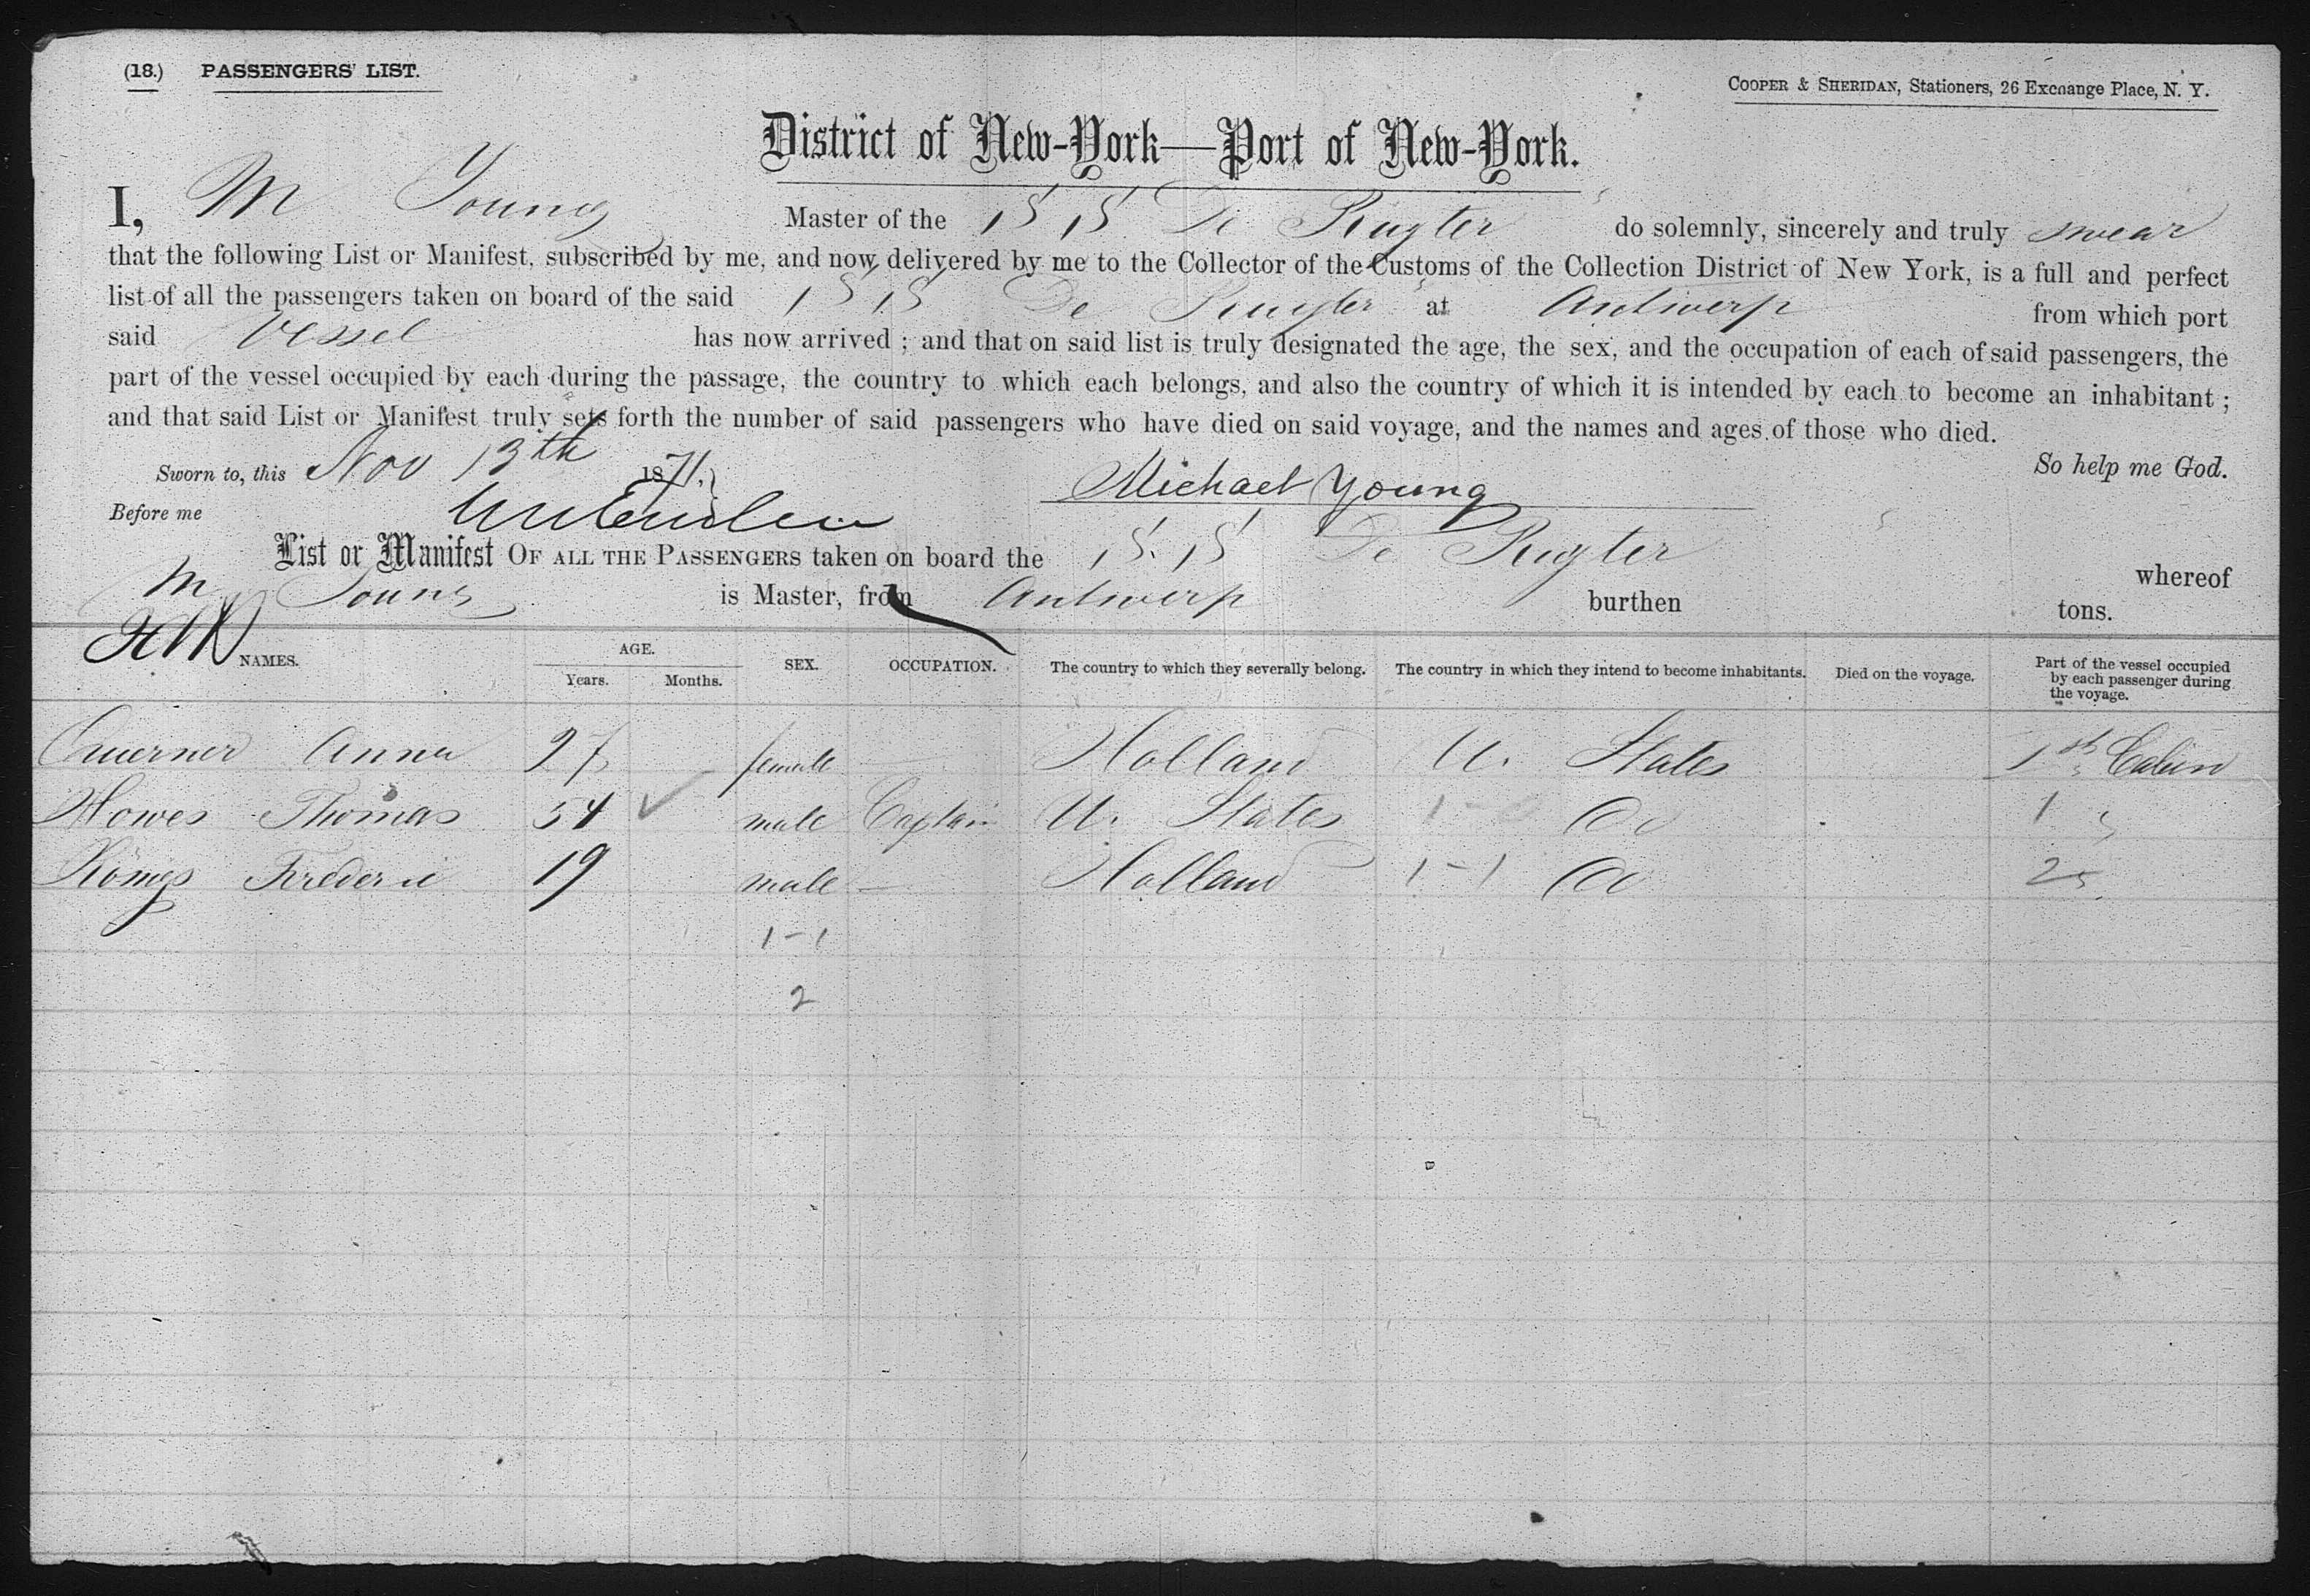 (18.) PASSENGERS' LIST.
COOPER & SHERIDAN, Stationers, 26 Exchange Place, N. Y.
District of New-York—Port of New-York.
I, M Young Master of the SS De Ruyter do solemnly, sincerely and truly swear
that the following List or Manifest, subscribed by me, and now delivered by me to the Collector of the Customs of the Collection District of New York, is a full and perfect
list of all the passengers taken on board of the said SS De Ruyter at Antwerp from which port
said Vessel has now arrived ; and that on said list is truly designated the age, the sex, and the occupation of each of said passengers, the
part of the vessel occupied by each during the passage, the country to which each belongs, and also the country of which it is intended by each to become an inhabitant ;
and that said List or Manifest truly sets forth the number of said passengers who have died on said voyage, and the names and ages of those who died.
Sworn to, this Nov 13th 1871. So help me God.
Michael Young
Before me
List or Manifest OF ALL THE PASSENGERS taken on board the S.S De Ruyter whereof
M Young is Master, from Antwerp burthen tons.
NAMES. AGE. Years. Months. SEX. OCCUPATION. The country to which they severally belong. The country in which they intend to become inhabitants. Died on the voyage. Part of the vessel occupied by each passenger during the voyage.
Anna 27 female — Holland U. States 1st Cabin
Howes Thomas 54 male Captain U. States Do 1 "
Königs Frederic 19 male — Holland 1-1 Do 2 "
1-1
2